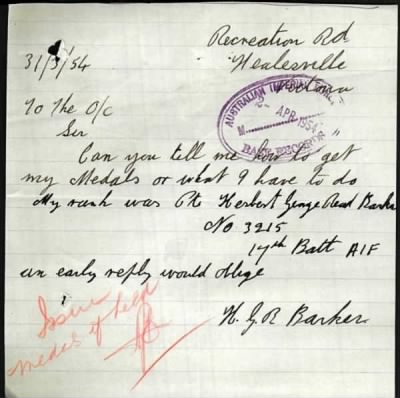 Recreation Rd
31/3/54 Healesville
Victoria
AUSTRALIAN IMPERIAL
2- APR 1954
M
BASE RECORDS
To The O/C
Sir
Can you tell me how to get
my Medals or what I have to do
My rank was Pte Herbert George Read Barker
No 3215
17th Batt AIF
an early reply would oblige
H. G. R Barker
Issue
medal if held